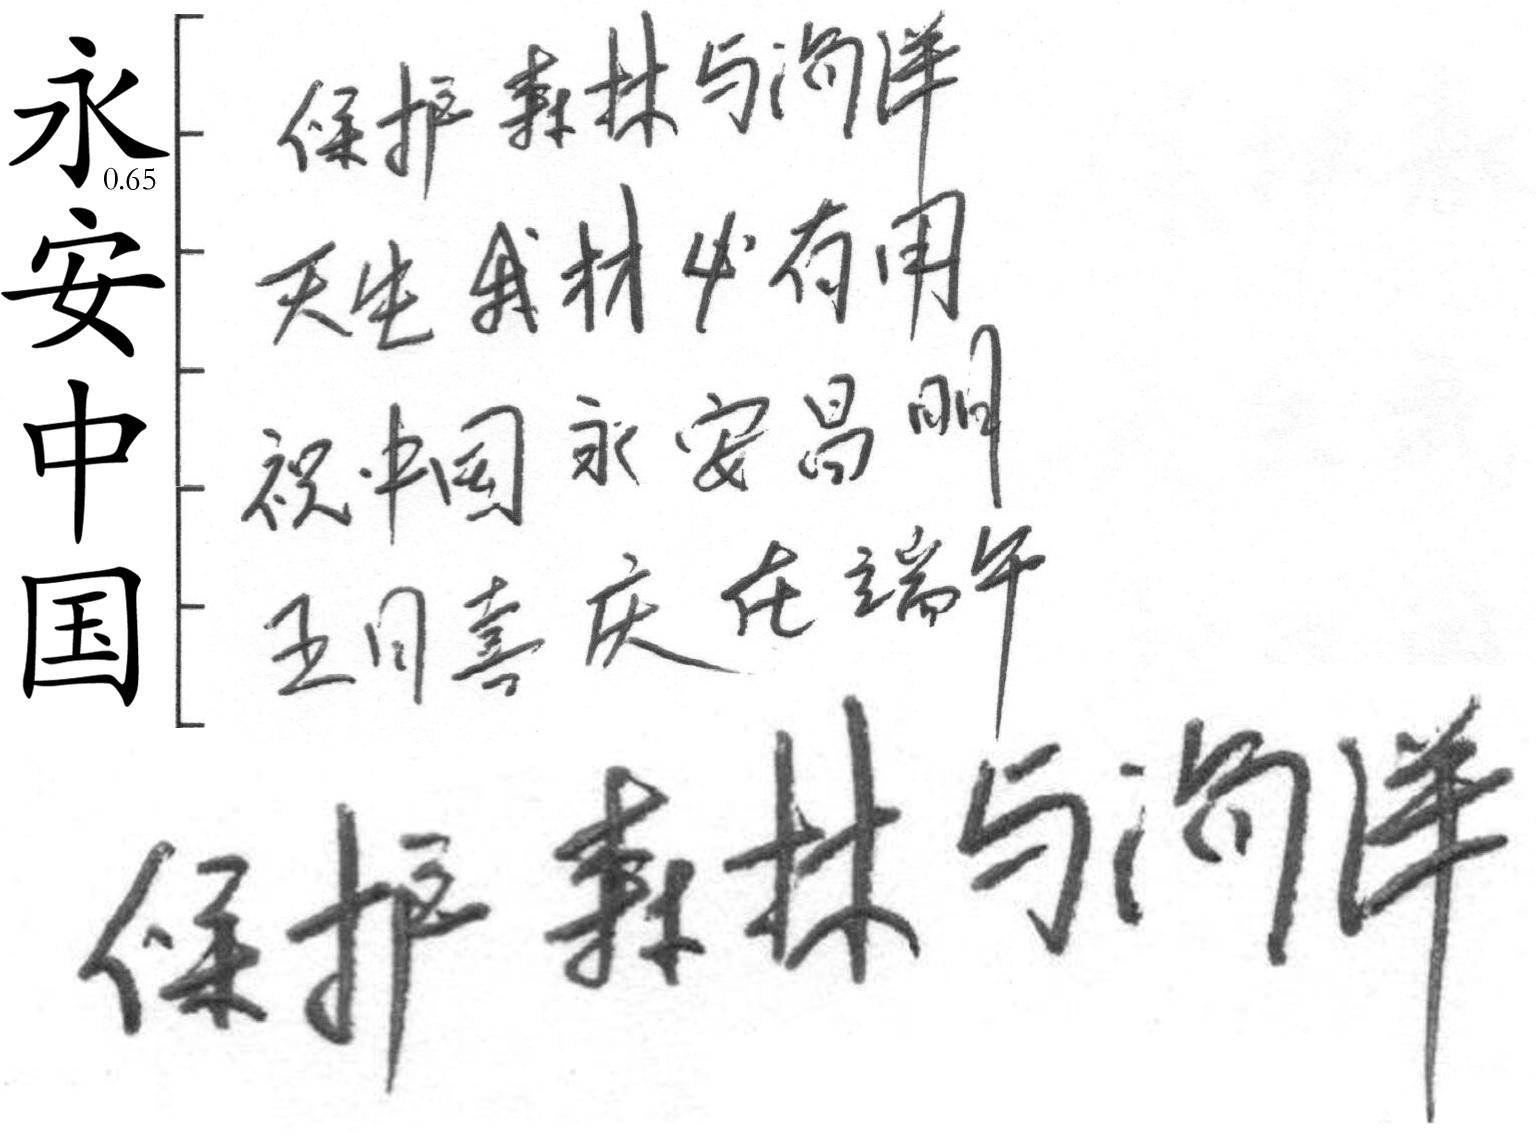 永安中国
0.65
保护森林与海洋
天生我材必有用
祝中国永安昌明
五月喜庆在端午
保护森林与海洋